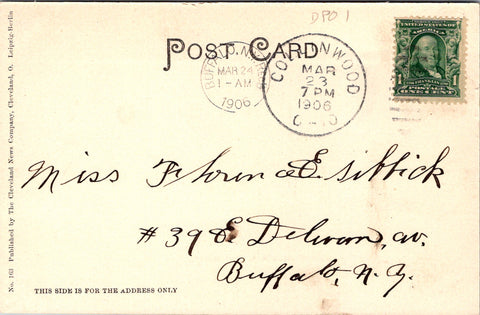 DPO 1
POST CARD
BUFFALO, N.Y.
MAR 24
1-AM
1906
COTTONWOOD
MAR
23
7 PM
1906
OHIO
UNITED STATES OF AMERICA
1 1
POSTAGE
ONE CENT
Miss Floren E. Sibbick
# 39 E. Delevan, av.
Buffalo, N. Y.
THIS SIDE IS FOR THE ADDRESS ONLY
No. 163 Published by The Cleveland News Company, Cleveland, O. Leipzig-Berlin